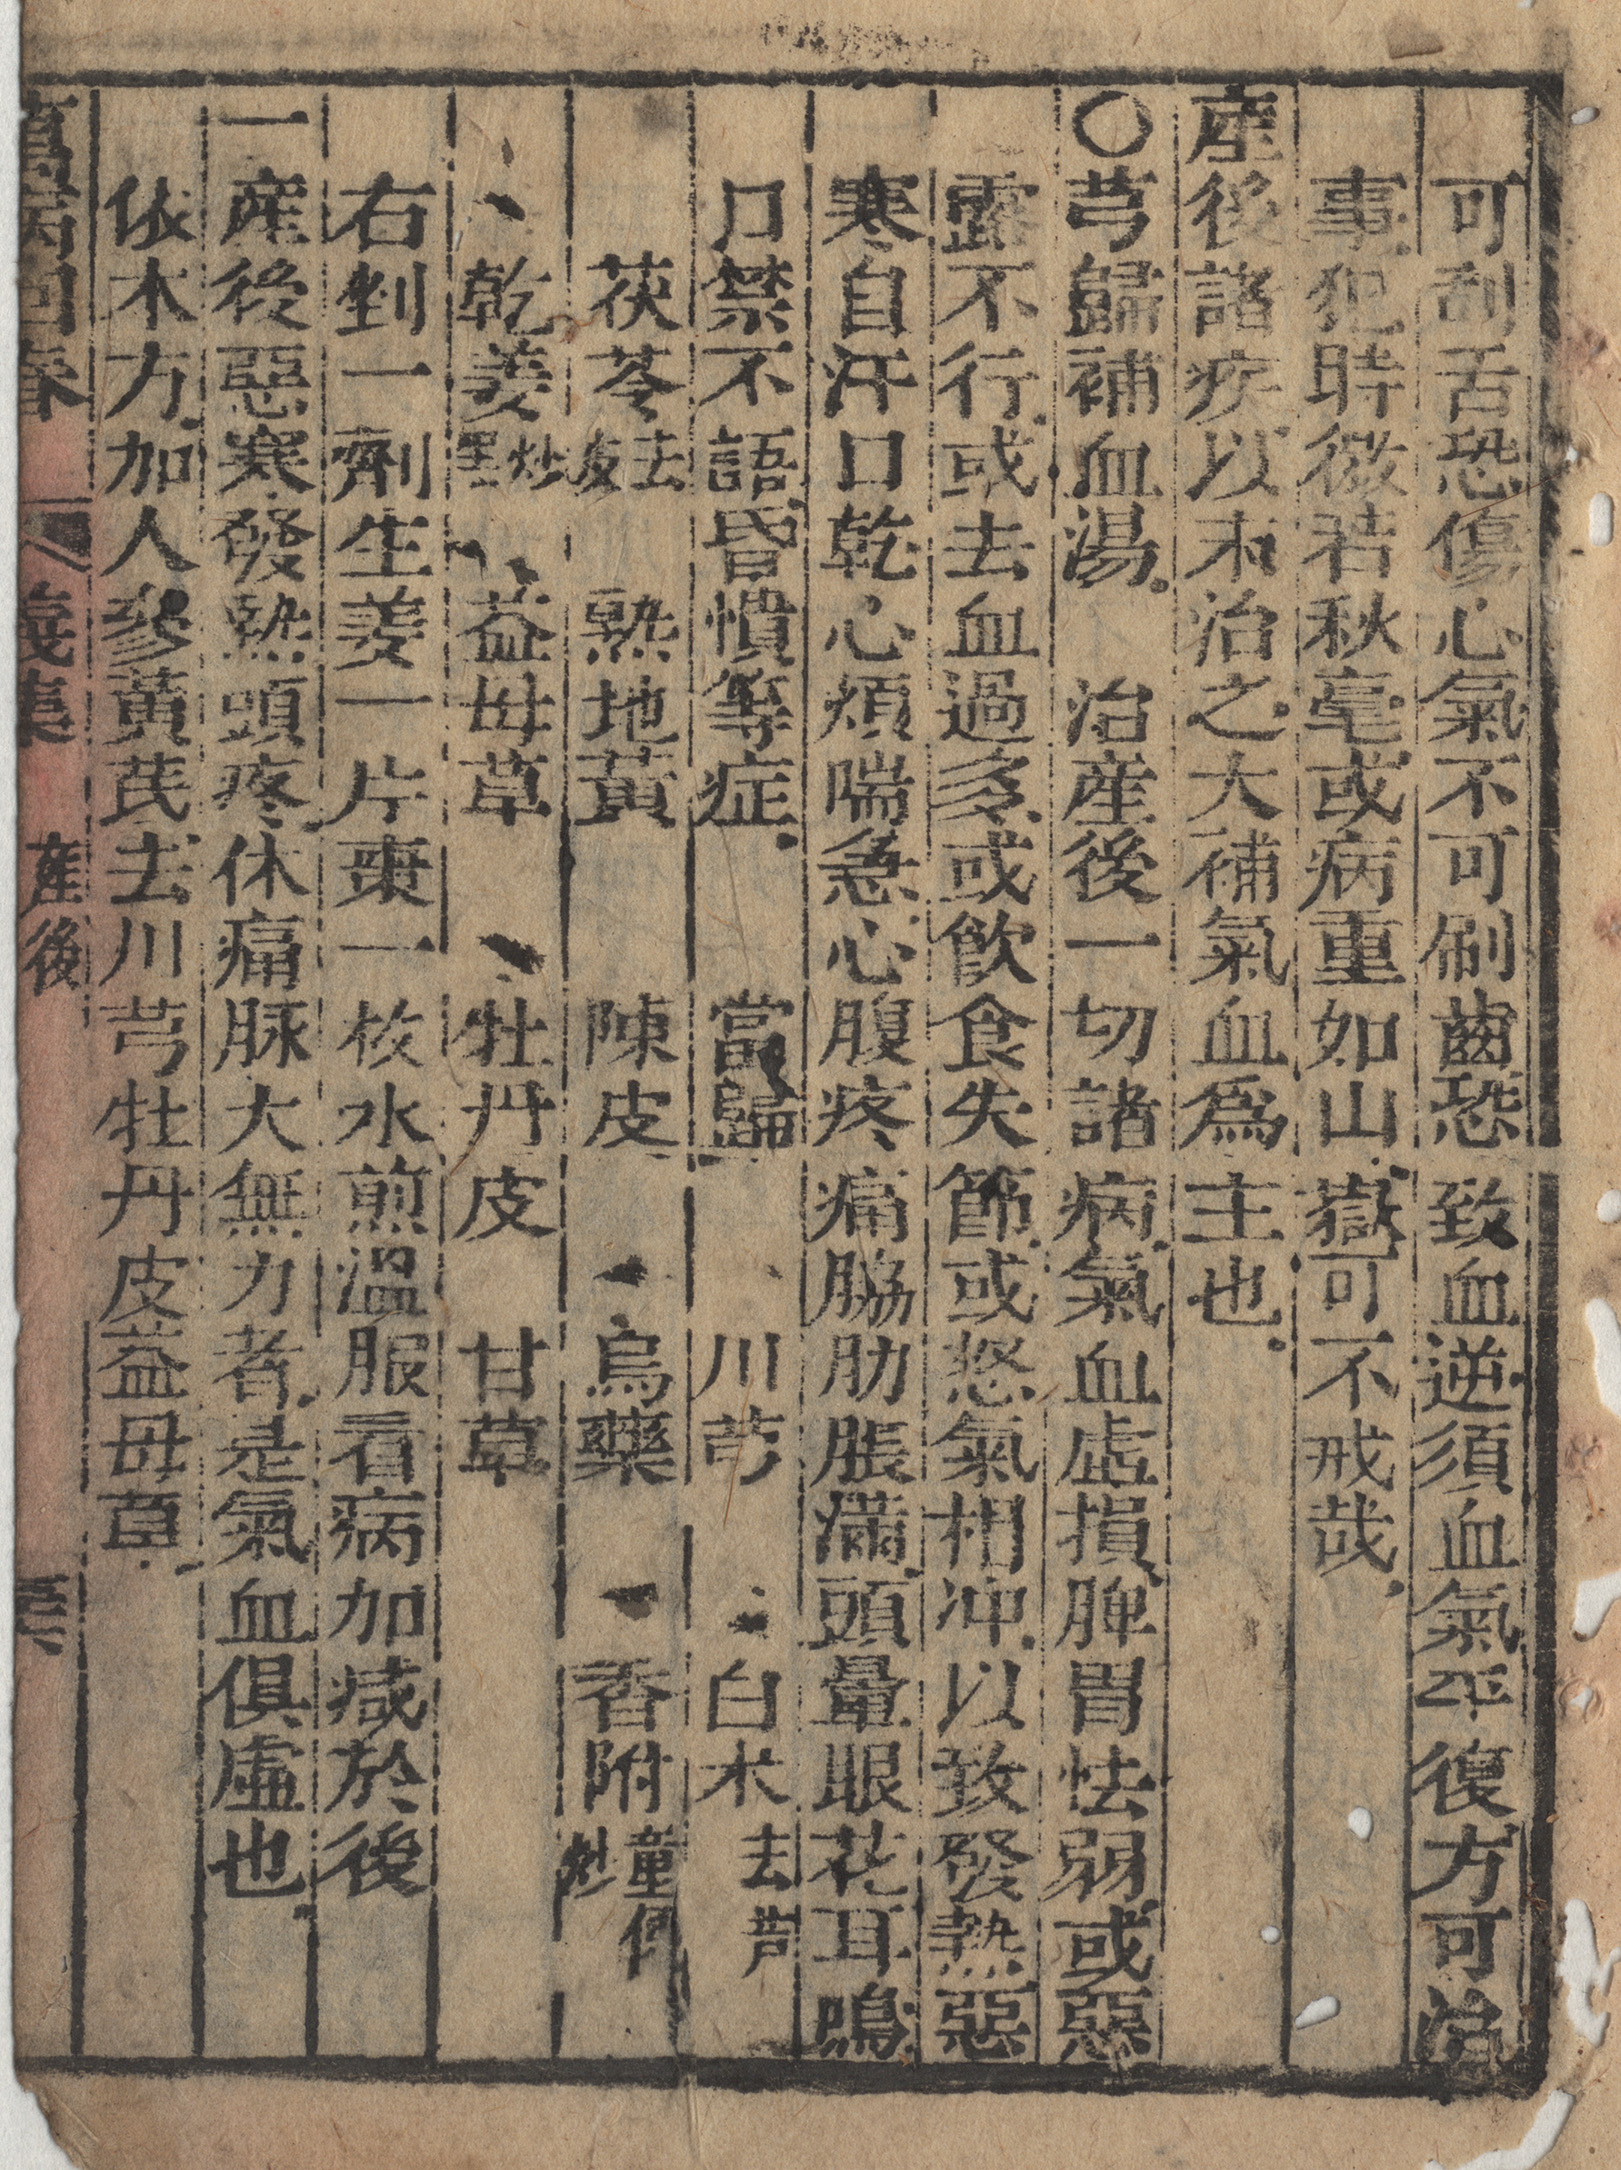 可刮舌恐傷心氣不可刷齒恐致血逆須血氣平復方可治
事犯時微若秋毫或病重如山嶽可不戒哉
産後諸疾以末治之大補氣血爲主也
○芎歸補血湯 治産後一切諸病氣血虛損脾胃怯弱或惡
露不行或去血過多或飮食失節或怒氣相冲以致發熱惡
寒自汗口乾心煩喘急心腹疼痛脇肋脹滿頭暈眼花耳鳴
口禁不語昏憒等症 當歸 川芎 白术去芦
茯苓去皮 熟地黃 陳皮 烏藥 香附童便炒
乾姜炒黑 益母草 牡丹皮 甘草
右剉一劑生姜一片棗一枚水煎溫服看病加减於後
一産後惡寒發熱頭疼休痛脉大無力者是氣血俱虛也
依本方加人參黃芪去川芎牡丹皮益母草
萬病回春 八 産後